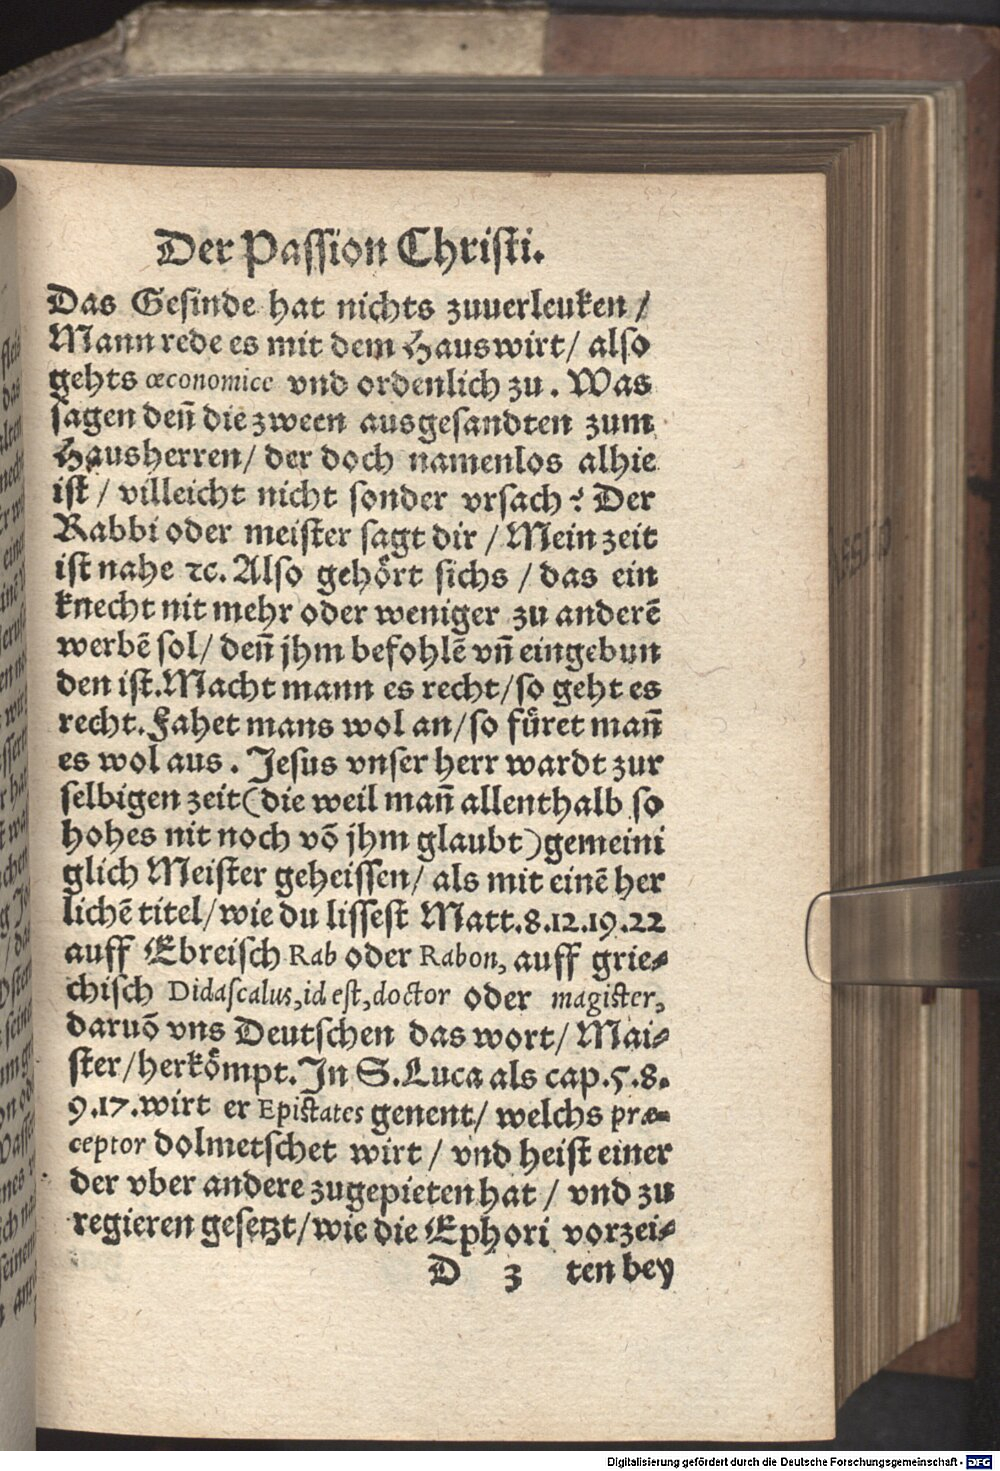 Der Passion Christi.
Das Gesinde hat nichts zuuerleuken /
Mann rede es mit dem Hauswirt / also
gehts œconomice vnd ordenlich zu. Was
sagen deñ die zween ausgesandten zum
Hausherren / der doch namenlos alhie
ist / villeicht nicht sonder vrsach? Der
Rabbi oder meister sagt dir / Mein zeit
ist nahe ꝛc. Also gehört sichs / das ein
knecht nit mehr oder weniger zu anderē
werbē sol / deñ jhm befohlē vñ eingebun
den ist. Macht mann es recht / so geht es
recht. Fahet mans wol an / so füret mañ
es wol aus. Jesus vnser herr wardt zur
selbigen zeit (die weil mañ allenthalb so
hohes nit noch võ jhm glaubt) gemeini
glich Meister geheissen / als mit einē her
lichē titel / wie du lissest Matt.8.12.19.22
auff Ebreisch Rab oder Rabon, auff grie⸗
chisch Didascalus, id est, doctor oder magister,
daruõ vns Deutschen das wort / Mai⸗
ster / herkömpt. In S. Luca als cap.5.8.
9.17. wirt er Epistates genent / welchs præ⸗
ceptor dolmetschet wirt / vnd heist einer
der vber andere zugepieten hat / vnd zu
regieren gesetzt / wie die Ephori vorzei⸗
D 3 ten bey
Digitalisierung gefördert durch die Deutsche Forschungsgemeinschaft - DFG